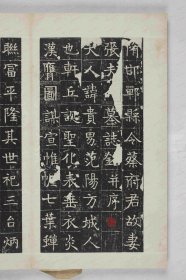 隋邯鄲縣令蔡府君故妻
張夫人墓誌銘并序
夫人諱貴男范陽方城人
也軒丘誕聖化表垂衣炎
漢膺圖謀宣帷幄七葉蟬
聯冨平隆其世祀三台炳